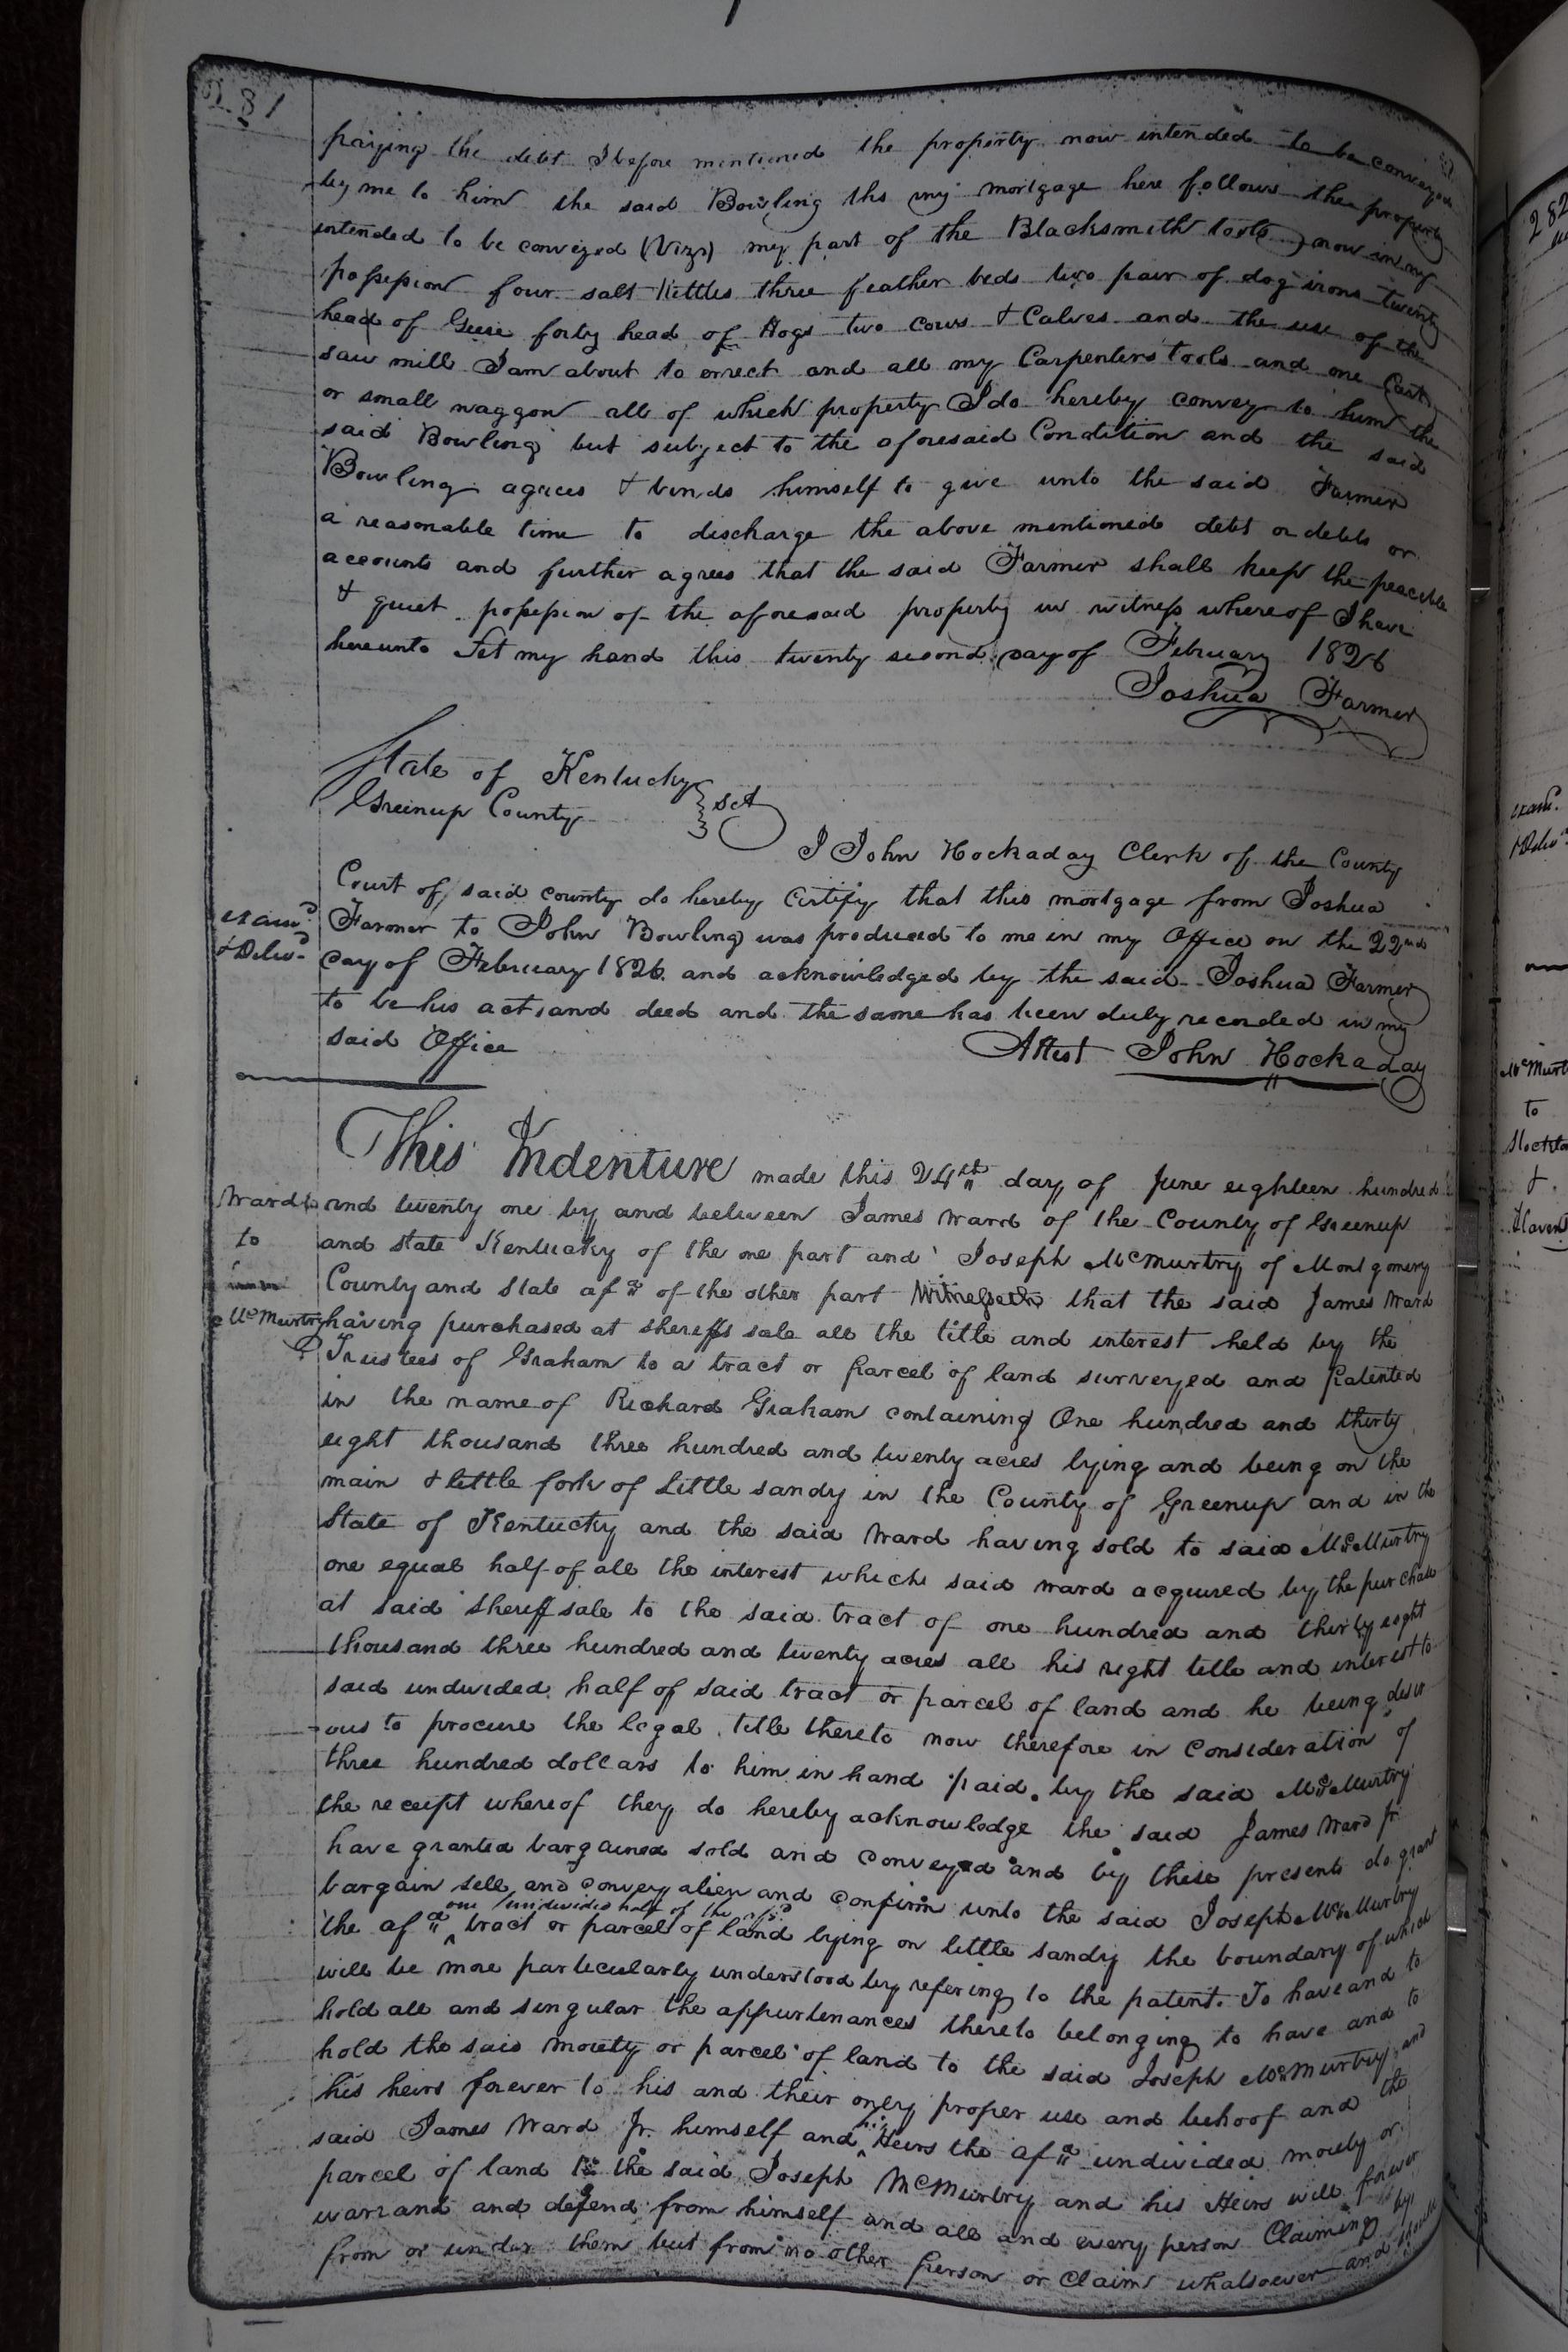 281
paying the debt I before mentioned the property now intended to be conveyed
by me to him the said Bowling ths my mortgage here follows the property
intended to be conveyed (Vizs) my part of the Blacksmith tools now in my
possession four salt Kettles three feather beds two pair of dog irons twenty
head of Geese forty head of Hogs two cows & Calves and the use of the
saw mill I am about to errect and all my Carpenters tools and one Cart
or small waggon all of which property I do hereby convey to him the
said Bowling but subject to the aforesaid Condition and the said
Bowling agrees & binds himself to give unto the said Farmer
a reasonable time to discharge the above mentioned debt or debts or
accounts and further agrees that the said Farmer shall keep the peacible
& quiet possession of the aforesaid property in witness whereof I have
hereunto set my hand this twenty second day of February 1826
Joshua Farmer
State of Kentucky
Greenup County } sct
I John Hockaday Clerk of the County
Court of said county do hereby Certify that this mortgage from Joshua
examd
& Delivd
Farmer to John Bowling was produced to me in my Office on the 22nd
day of February 1826 and acknowledged by the said Joshua Farmer
to be his act and deed and the same has been duly recorded in my
said Office
Attest John Hockaday
This Indenture made this 24th day of June eighteen hundred
Ward
to
McMurtry
and twenty one by and between James Ward of the County of Greenup
and state Kentucky of the one part and Joseph McMurtry of Montgomery
County and State afd of the other part Witnesseth that the said James Ward
having purchased at sheriffs sale all the title and interest held by the
Trustees of Graham to a tract or parcel of land surveyed and patented
in the name of Richard Graham containing One hundred and thirty
eight thousand three hundred and twenty acres lying and being on the
main & little fork of Little sandy in the County of Greenup and in the
State of Kentucky and the said Ward having sold to said McMurtry
one equal half of all the interest which said ward acquired by the purchase
at said sheriff sale to the said tract of one hundred and thirty eight
thousand three hundred and twenty acres all his right title and interest to
said undivided half of said tract or parcel of land and he being desir
ous to procure the legal title thereto now therefore in Consideration of
three hundred dollars to him in hand paid by the said McMurtry
the receipt whereof they do hereby acknowledge the said James Ward Jr
have granted bargained sold and conveyed and by these presents do grant
bargain sell and convey alien and confirm unto the said Joseph McMurtry
one undivided half of the afsd
the afd ^ tract or parcel of land lying on little sandy the boundary of which
will be more particularly understood by refering to the patent. To have and to
hold all and singular the appurtenances thereto belonging to have and to
hold the said moiety or parcel of land to the said Joseph McMurtry and
his heirs forever to his and their only proper use and behoof and the
said James Ward Jr. himself and ^ Heirs the afd undivided moiety or
parcel of land to the said Joseph McMurtry and his Heirs will forever
warrant and defend from himself and all and every person Claiming by
from or under them but from no other person or Claim whatsoever and should
282
examd
& Delivd
McMurt
to
Stockto
&